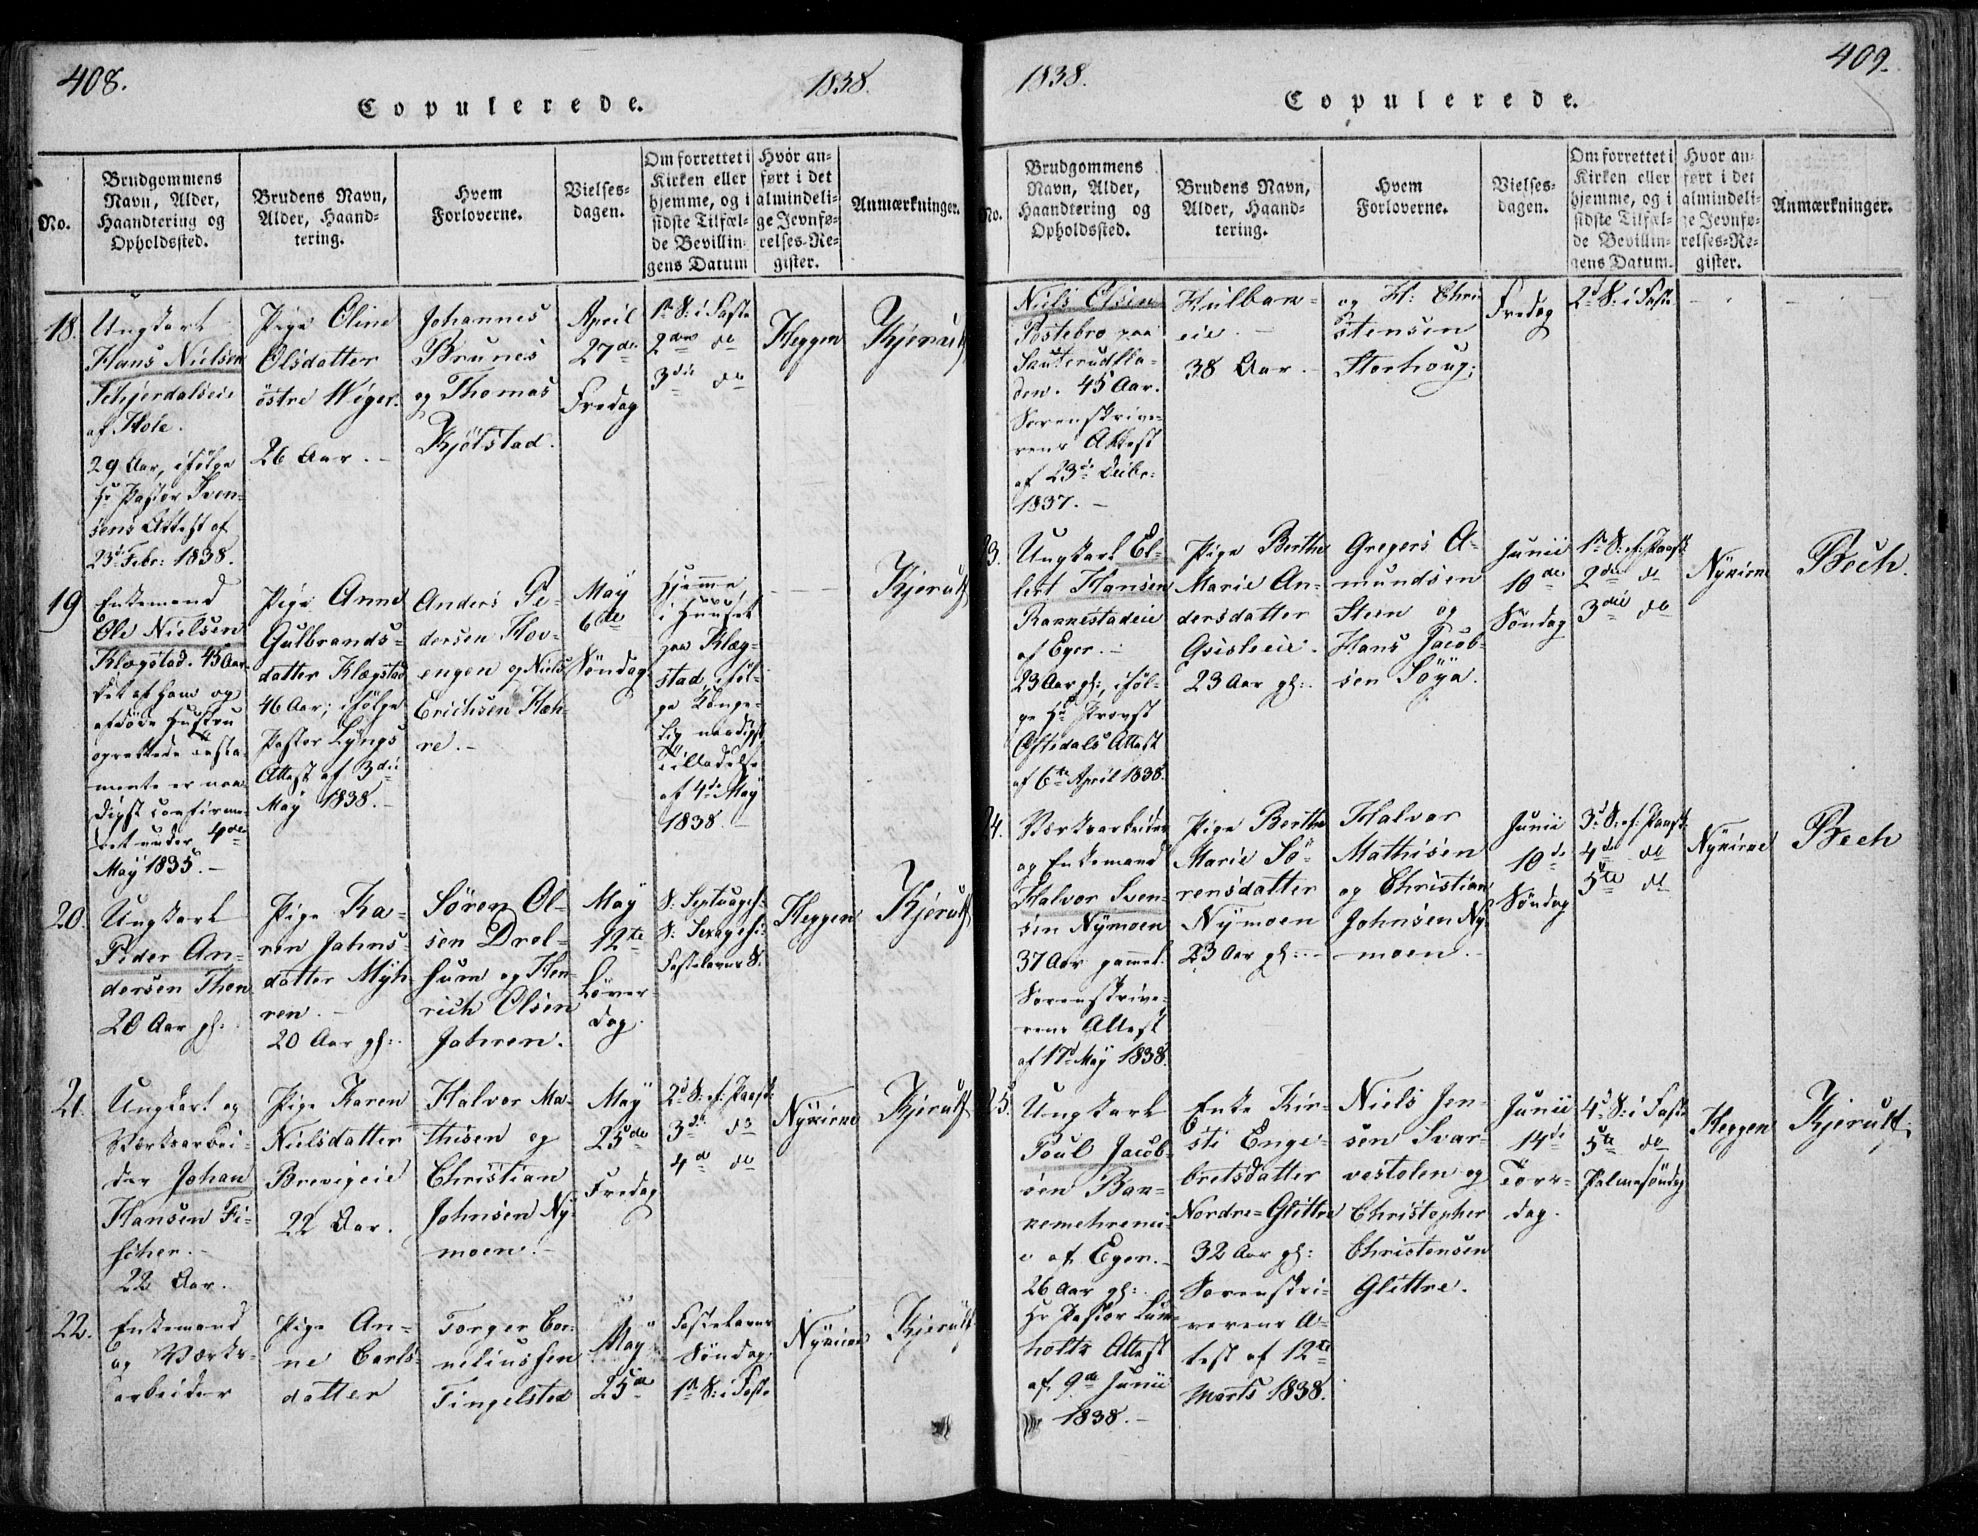 408.
1838.
Copulerede.
No.
Brudgommens Navn, Alder, Haandtering og Opholdssted.
Brudens Navn, Alder, Haandtering.
Hvem Forloverne.
Vielsesdagen.
Om forrettet i Kirken eller hjemme, og i sidste Tilfælde Bevillingens Datum
Hvor anført i det almindelige Jevnførelses-Register.
Anmærkninger.
18.
Ungkarl
Hans Nielsen
af Hole.
29 Aar, ifølge
Hr. Pastor Svensens Attest af
23de Febr: 1838.
Pige Oline
Olsdatter
østre Wiger.
26 Aar. –
Johannes
Brunes
og Thomas
Kjölstad.
April
27de
Fredag
1ste S: i Faste
2den do
3die do
Heggen
Kjerulf
19
Enkemand
Ole Nielsen
Klægstad. 45 Aar.
afdøde Hustru
oprettede Testa-
mente er naa-
digst confirme-
ret under 4de
May 1835. –
Pige Anne
Gulbrands-
datter Klægstad
46 Aar; ifølge
Pastor Lyngs
Attest af 3die
May 1838. –
Anders Pe-
dersen Hov-
engen og Niels
Erichsen Hæh-
re. –
May
6te
Søndag
Hjemme
i Huuset
paa Klæg-
stad, iføl-
ge Konge-
lig naadigst
Tilladelse
af 4de May
1838. –
Kjerulf
20.
Ungkarl
Peder An-
dersen Thoen
20 Aar gl:
Pige Ka-
ren Jahns-
datter Myh-
ren. –
20 Aar gl:.
Sören Ol-
sen Drol-
sum og Hen-
rich Olsen
Jahren.
May
12te
Löver-
dag.
S: Septuages:
S: Sexagesi:
Fastelavns S.
Heggen
Kjerulf
21.
Ungkarl og
Værksarbei-
der Johan
Hansen Fi-
scher. –
22 Aar.
Pige Karen
Nielsdatter
Brevigeie
22 Aar.
Halvor Ma-
thisen og
Christian
Johnsen Ny-
moen. –
May
25de
Fredag
2d S: ef: Paaske
3di do
4de do
Nykirke
Kjerulf
22.
Enkemand
og Værks-
arbeider
Pige An-
ne Carls-
datter
Torger Cor-
neliussen
Tingelstad
May
25de
Fastelavns
Søndag
1ste S: i Faste
Nykirke
Kjerulf
1838.
409.
Copulerede.
No.
Brudgommens Navn, Alder, Haandtering og Opholdssted.
Brudens Navn, Alder, Haandtering.
Hvem Forloverne.
Vielsesdagen.
Om forrettet i Kirken eller hjemme, og i sidste Tilfælde Bevillingens Datum.
Hvor anført i det almindelige Jevnførelses-Register.
Anmærkninger.
Niels Olsen
Postebro paa
den. 45 Aar.
Sorenskrive-
rens Attest
af 23de Decbr:
1837. –
eie. –
38 Aar. –
og H: Chri-
stensen
Storhoug.
Fredag
2d S: i Faste
23.
Ungkarl El-
lert Hansen
Rannestadeie
af Eger. –
23 Aar gl:, iføl-
ge Hr. Provst
Attest
af 6te April 1838.
Pige Berthe
Marie An-
dersdatter
23 Aar gl:.
Gregers A-
mundsen
Steen og
Hans Jacob-
sen Söya.
Junii
10de
Søndag
1ste S: ef: Paaske
2den do
3die do
Nykirke
Bech.
24.
Værksarbeider
og Enkemand
Halvor Sven-
sen Nymoen
37 Aar gammel.
Sorenskrive-
rens Attest
af 17de May 1838.
Pige Berthe
Marie Sö-
rensdatter
Nymoen
23 Aar gl: –
Halvor
Mathisen
og Christian
Johnsen Ny-
moen. –
Junii
10de
Søndag
3d S: ef: Paaske
4de do
5te do
Nykirke
Bech
25.
Ungkarl
Poul Jacob-
sen Ban-
e af Eger. –
26 Aar gl:
Hr Pastor Lum-
holtz Attest
af 9de Junii
1838. –
Enke Kir-
sti Enge-
bretsdatter
Nordre-Glittre
32 Aar gl:
Sorenskri-
verens A-
test af 12te
Marts 1838.
Niels Jen-
sen Svar-
vestolen og
Christopher
Christensen
Glittre.
Junii
14de
Tors-
dag.
4d S: i Faste
5te do
Palmesöndag
Heggen
Kjerulf.